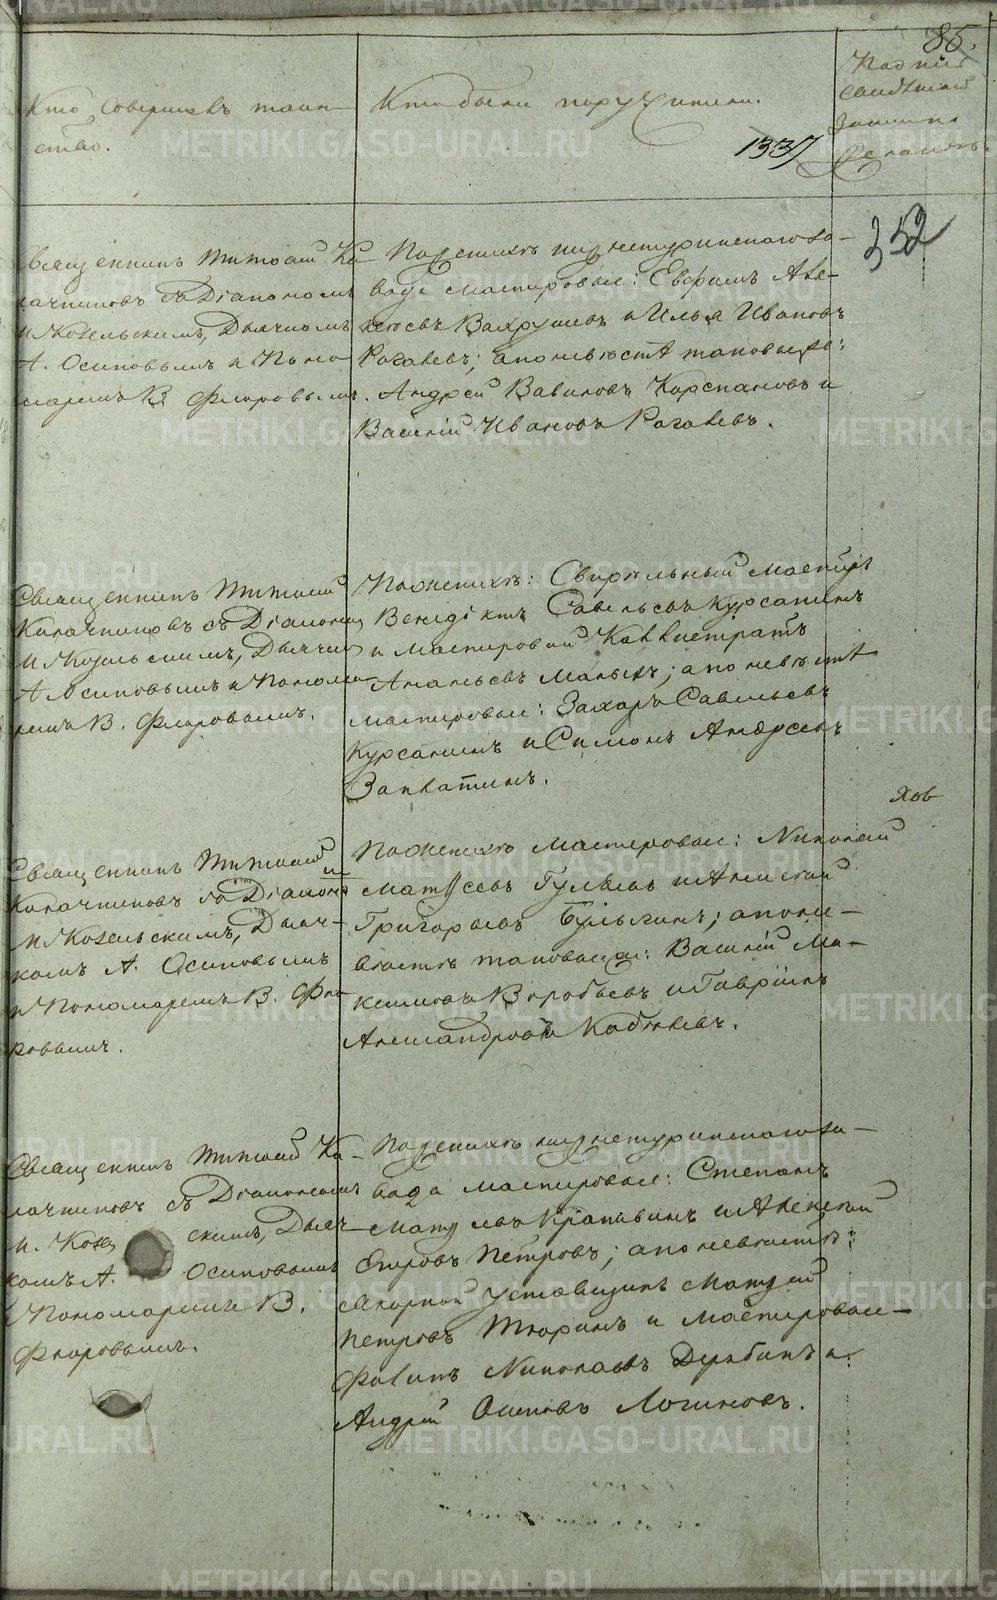 85.
Кто совершалъ таин-
ство.
Кто были поручители.
Подпись
свидѣтелей
записи
по желанію.
1337
352
Священникъ Титъ Ка-
лачниковъ съ Діакономъ
И. Козельскимъ, Дьячкомъ
А. Осиповымъ и Поно-
маремъ В. Флоровымъ.
По женихѣ нижнетуринскаго за-
вода мастеровые: Ефимъ
Вахрушевъ и Илья Ивановъ
Рогалевъ; а по невѣстѣ таковые же:
Андрей Вавиловъ и
Василій Ивановъ Рогалевъ.
Священникъ
Калачниковъ съ Діакономъ
И. Козельскимъ, Дьячкомъ
А. Осиповымъ и Понома-
ремъ В. Флоровымъ.
По женихѣ: мастеръ
Савельевъ Курсанинъ
и мастеровой Каллистратъ
Ананьевъ Малыхъ; а по невѣстѣ
мастеровые: Захаръ Савельевъ
Курсанинъ и Симонъ Андреевъ
Захватинъ.
Священникъ
Калачниковъ съ Діакономъ
И. Козельскимъ, Дьяч-
комъ А. Осиповымъ
и Пономаремъ В. Фло-
ровымъ.
По женихѣ мастеровые: Николай
Матѵеевъ Гулевъ и Алексей
Григорьевъ Булыгинъ; а по не-
вѣстѣ таковые же: Василій Ма-
ксимовъ Воробьевъ и Гавріилъ
Александровъ Кобяковъ.
Священникъ Ка-
лачниковъ съ Діакономъ
И. Козельскимъ, Дьяч-
комъ А. Осиповымъ
и Пономаремъ В.
Флоровымъ.
По женихѣ нижнетуринскаго за-
вода мастеровые: Степанъ
Крапивинъ и Алексей
Егоровъ Петровъ; а по невѣстѣ:
уставщикъ Матѵей
Петровъ Тюринъ и мастеровые
Николаевъ Дерябинъ и
Андрей Осиповъ Логиновъ.
METRIKI.GASO-URAL.RU